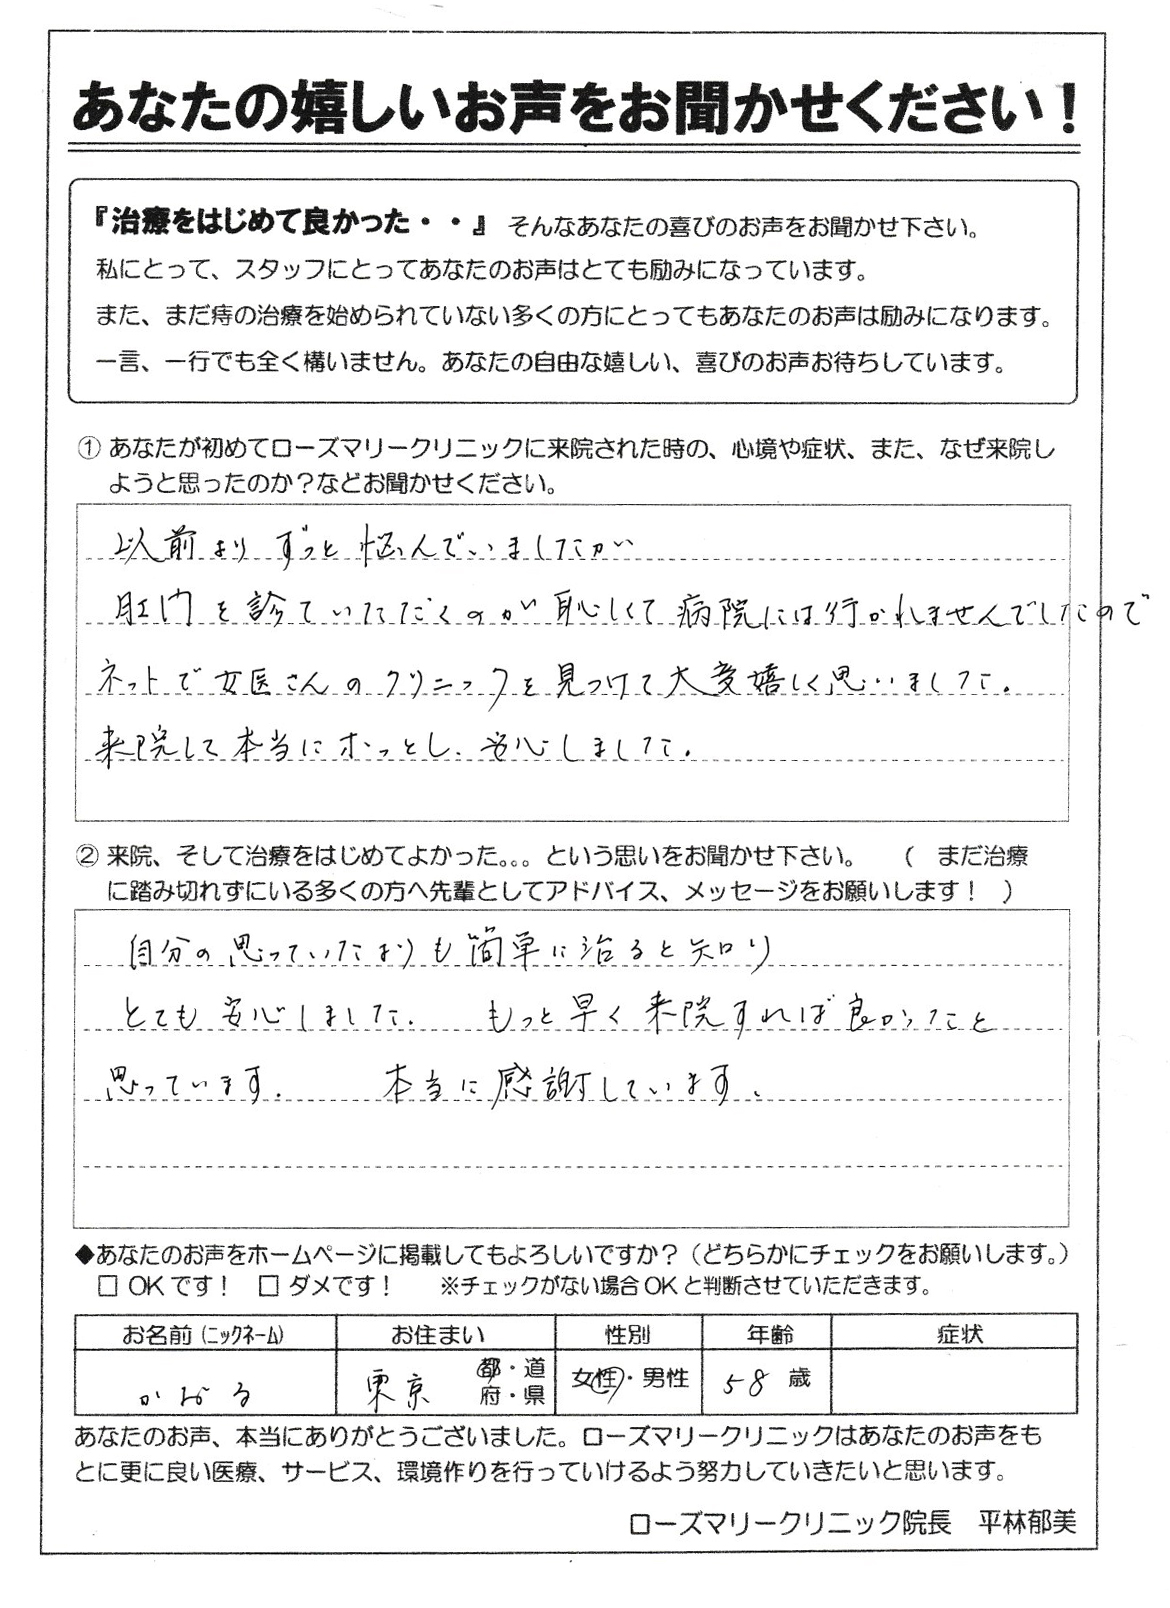 あなたの嬉しいお声をお聞かせください！
『治療をはじめて良かった・・』そんなあなたの喜びのお声をお聞かせ下さい。
私にとって、スタッフにとってあなたのお声はとても励みになっています。
また、まだ痔の治療を始められていない多くの方にとってもあなたのお声は励みになります。
一言、一行でも全く構いません。あなたの自由な嬉しい、喜びのお声お待ちしています。
① あなたが初めてローズマリークリニックに来院された時の、心境や症状、また、なぜ来院し
ようと思ったのか？などお聞かせください。
以前より ずっと 悩んでいましたが
肛門を診ていただくのが恥しくて病院には行かれませんでしたので
ネットで女医さんのクリニックを見つけて大変嬉しく思いました。
来院して本当にホッとし、安心しました。
② 来院、そして治療をはじめてよかった。。。という思いをお聞かせ下さい。 （ まだ治療
に踏み切れずにいる多くの方へ先輩としてアドバイス、メッセージをお願いします！ ）
自分の思っていたよりも簡単に治ると知り
とても安心しました。 もっと早く来院すれば良かったと
思っています。 本当に感謝しています。
◆あなたのお声をホームページに掲載してもよろしいですか？（どちらかにチェックをお願いします。）
□ OKです！ □ ダメです！ ※チェックがない場合OKと判断させていただきます。
お名前（ニックネーム） お住まい 性別 年齢 症状
かおる 東京 都・道 府・県 女性・男性 58 歳
あなたのお声、本当にありがとうございました。ローズマリークリニックはあなたのお声をも
とに更に良い医療、サービス、環境作りを行っていけるよう努力していきたいと思います。
ローズマリークリニック院長 平林郁美